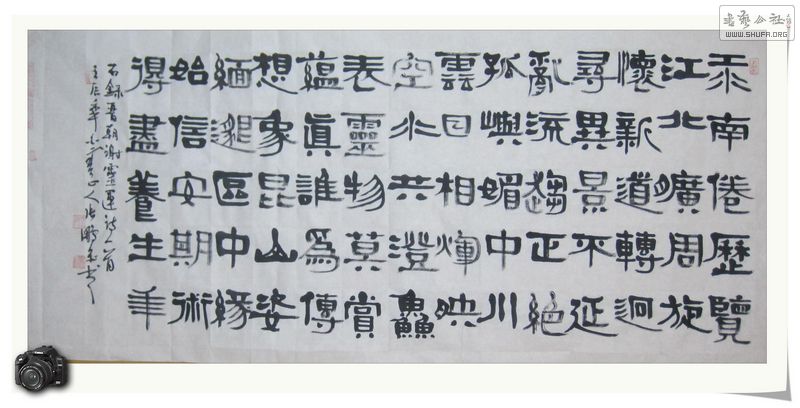 江南倦歷覽
江北曠周旋
懷新道轉迥
尋異景不延
亂流趨正絕
孤嶼媚中川
雲日相煇映
空水共澄鱻
表靈物莫賞
蘊真誰為傳
想象昆山姿
緬邈區中緣
始信安期術
得盡養生年
右錄晉朝謝靈運詩一首
書藝公社
WWW.SHUFA.ORG